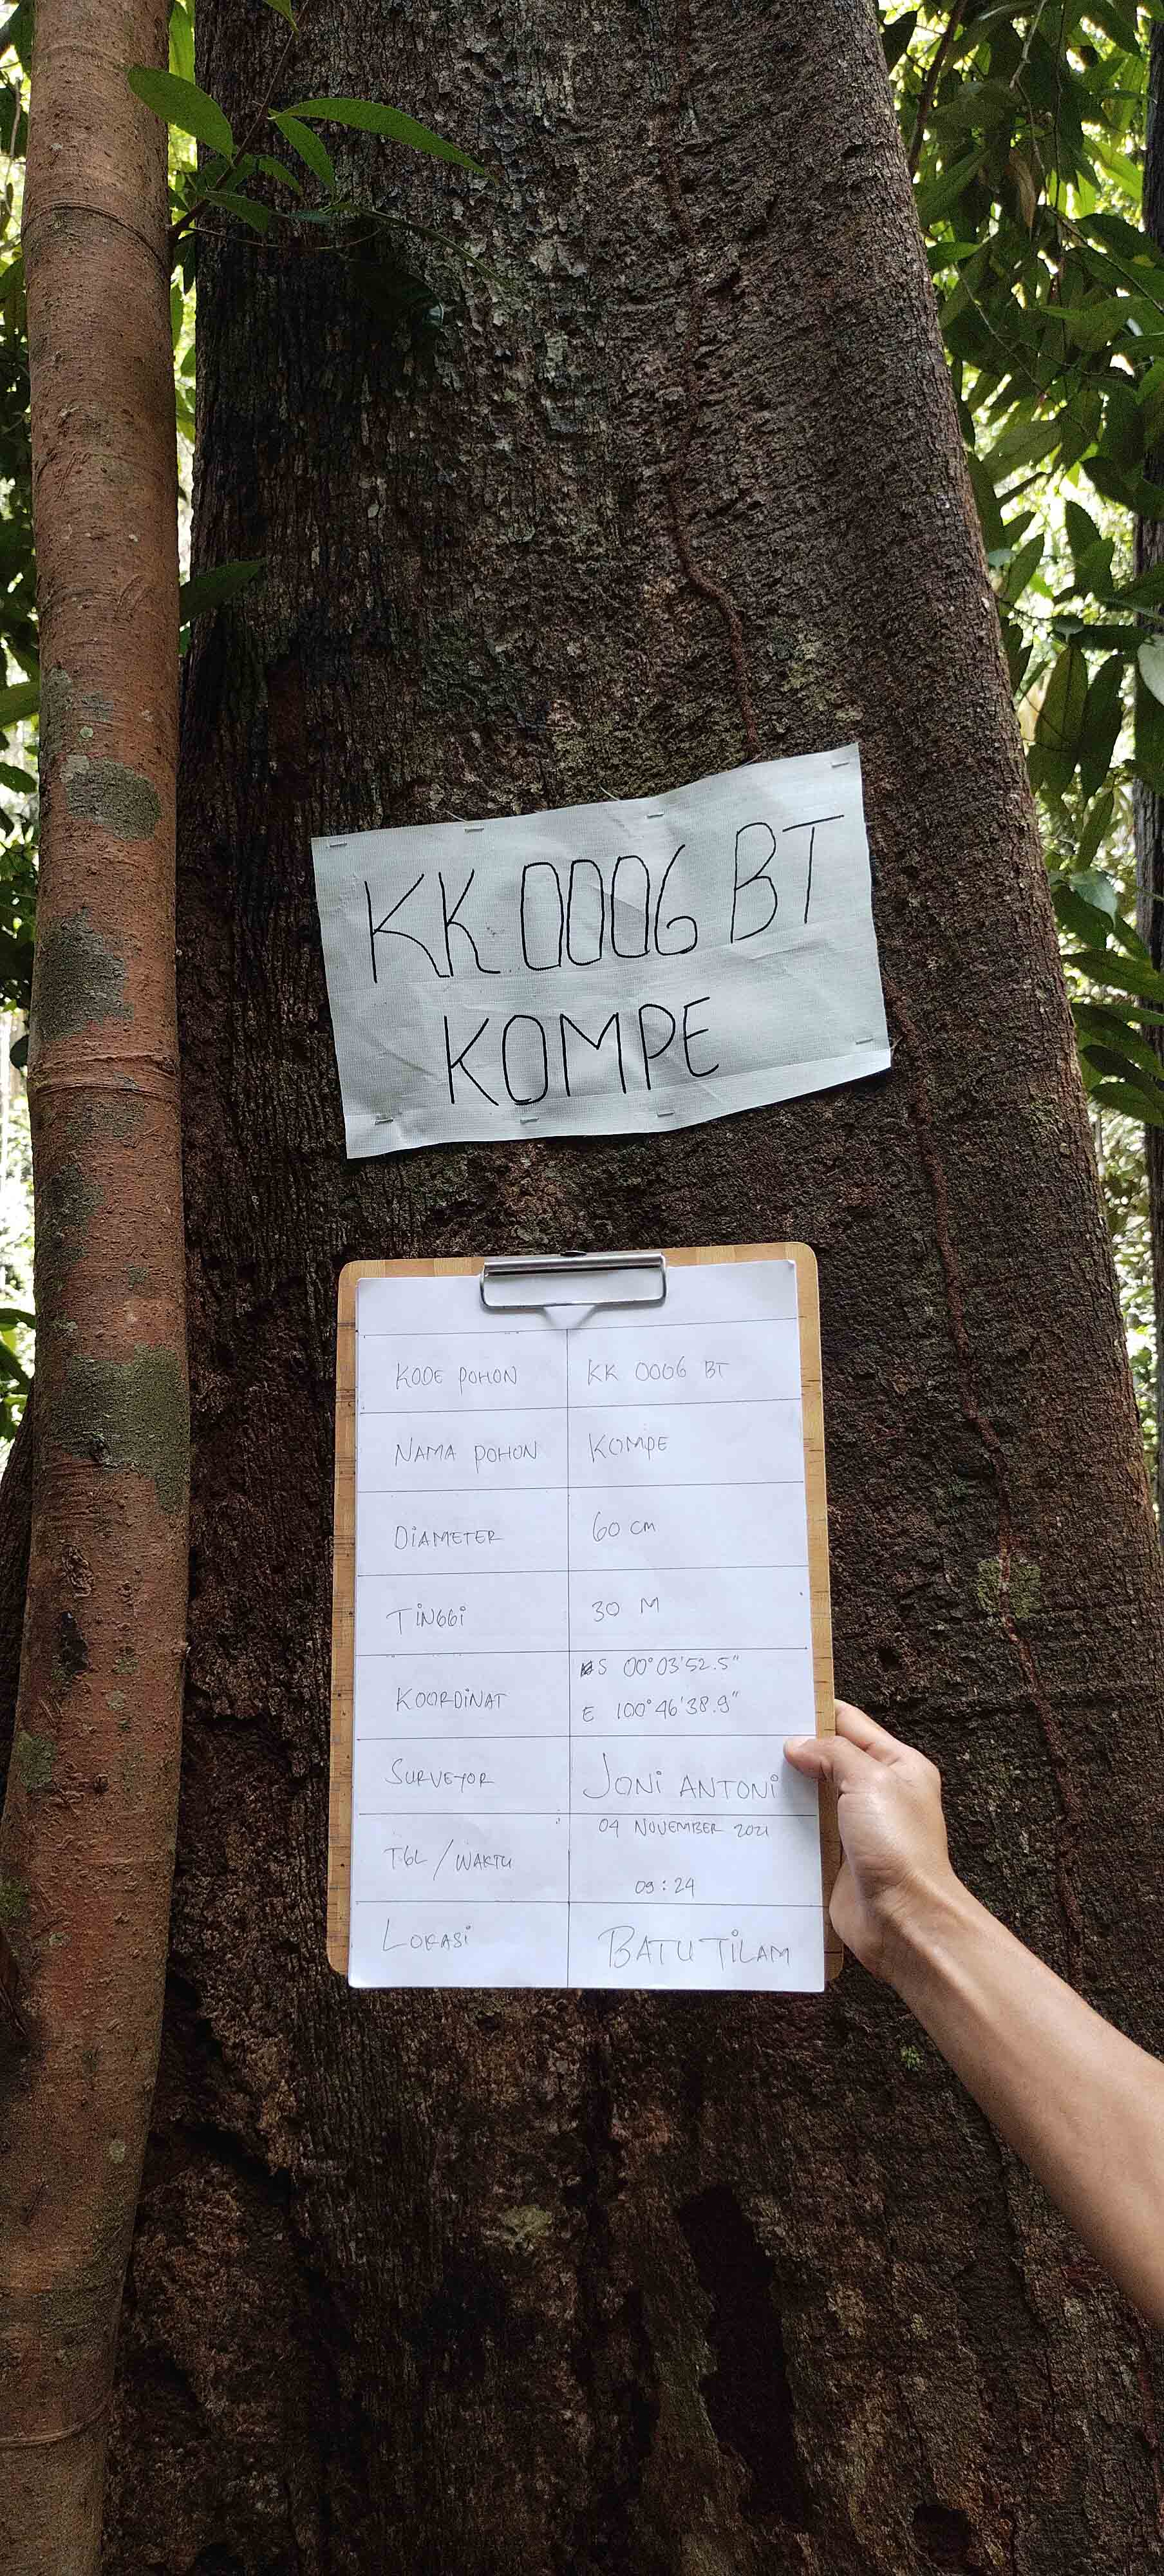 KK 0006 BT
KOMPE
KODE POHON KK 0006 BT
NAMA POHON KOMPE
DIAMETER 60 cm
TINGGI 30 M
KOORDINAT S 00°03'52.5"
E 100°46'38.9"
SURVEYOR JONI ANTONI
TGL / WAKTU 04 NOVEMBER 2021
09:24
LOKASI BATU TILAM